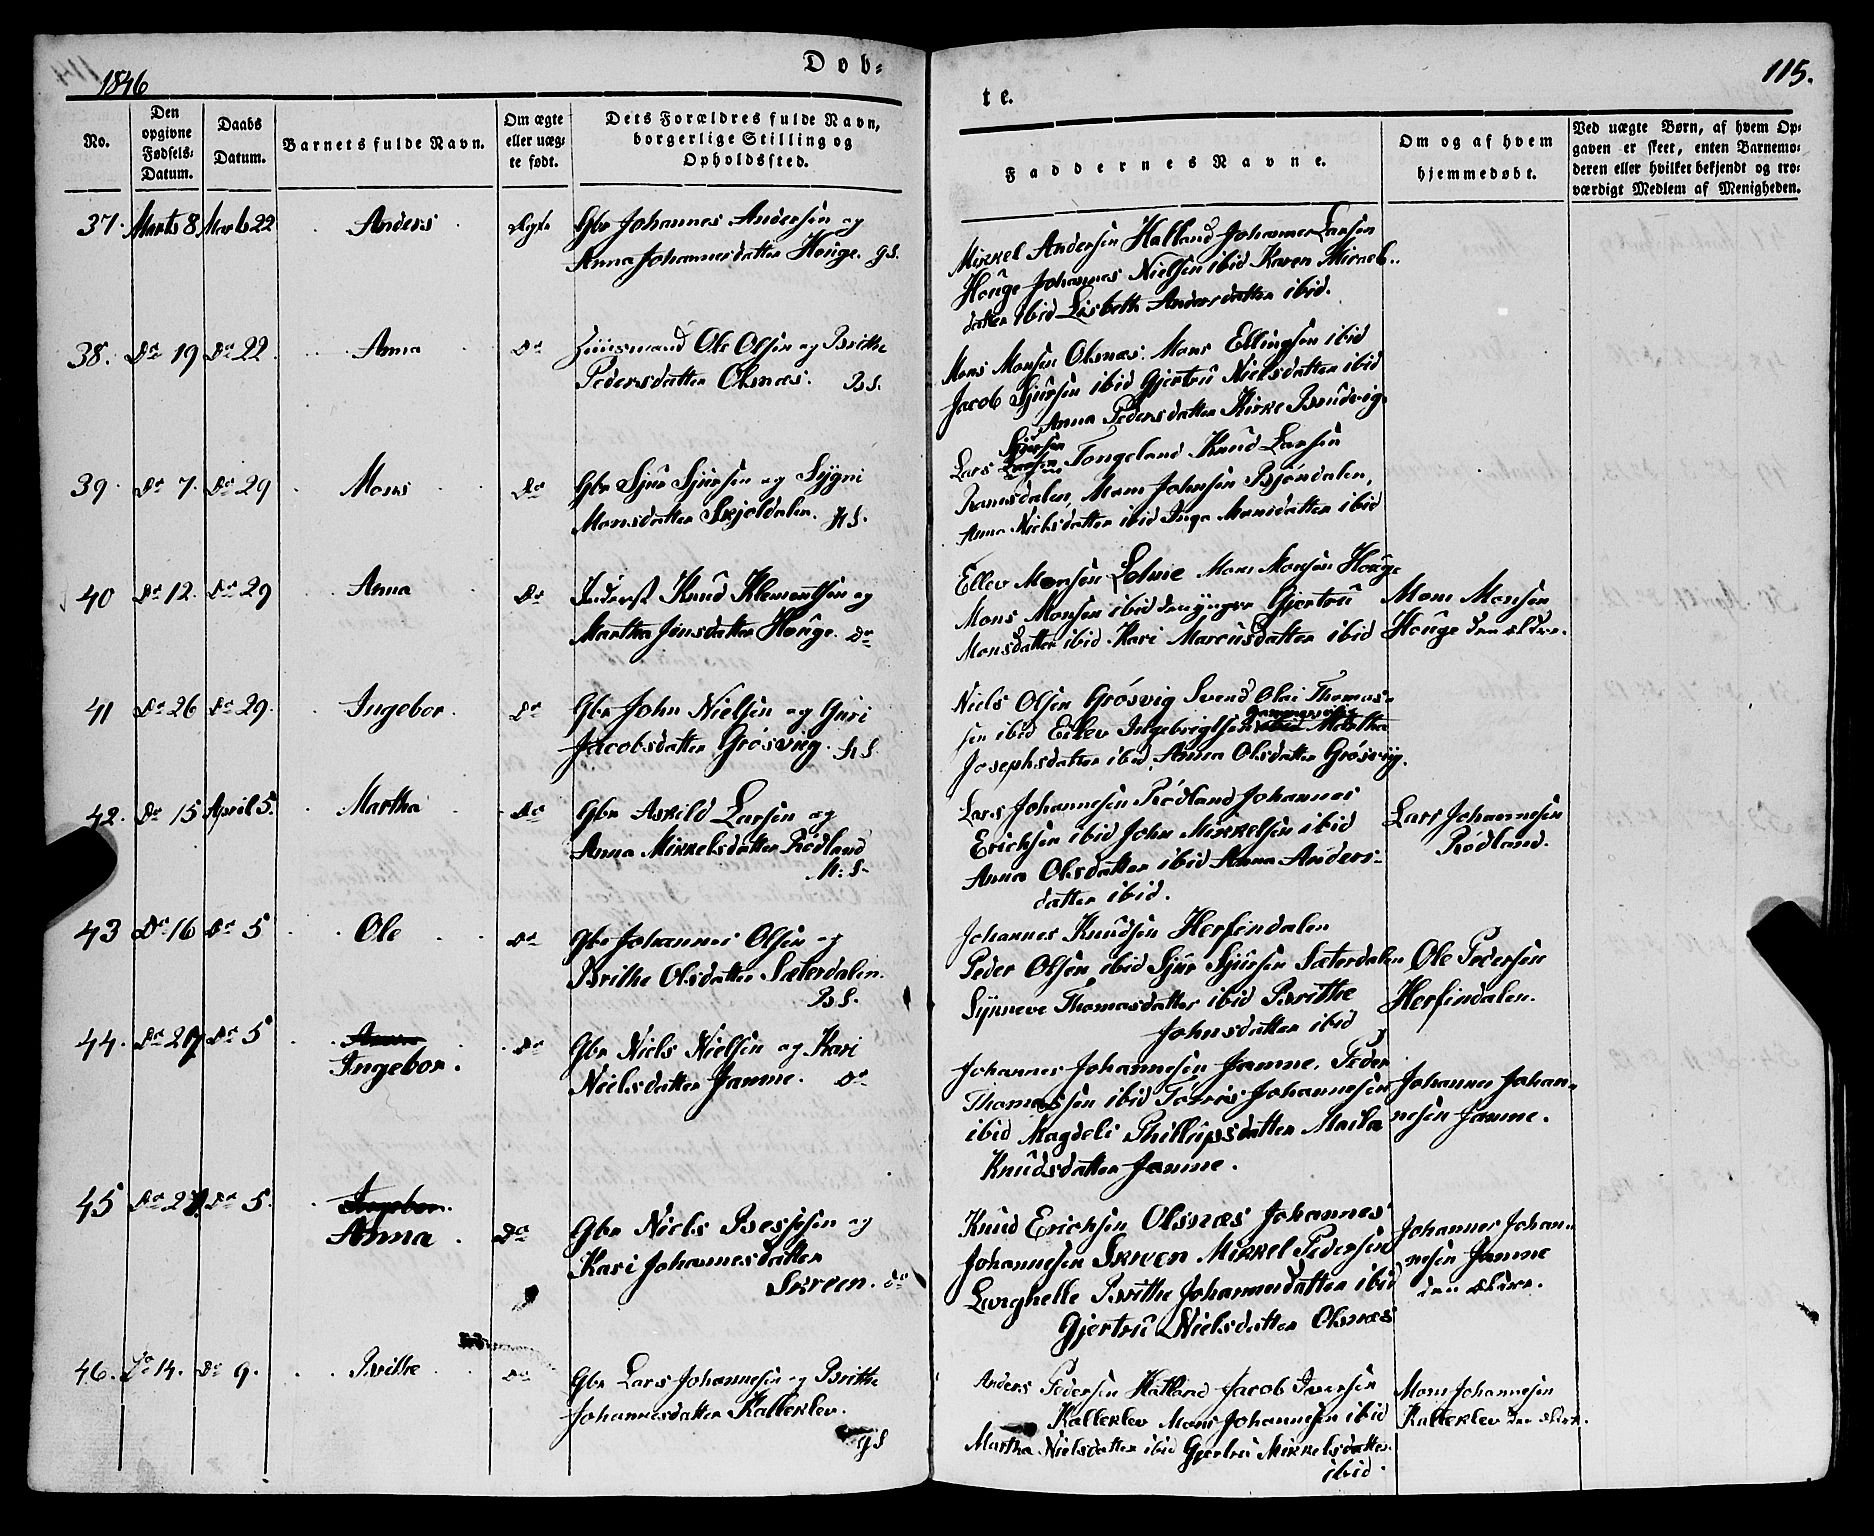 1846
Døb-
te.
115.
No.
Den opgivne Fødsels-Datum.
Daabs Datum.
Barnets fulde Navn.
Om ægte eller uægte født.
Dets Forældres fulde Navn, borgerlige Stilling og Opholdssted.
Faddernes Navne.
Om og af hvem hjemmedøbt.
Ved uægte Børn, af hvem Opgaven er skeet, enten Barnemoderen eller hvilket bekjendt og troværdigt Medlem af Menigheden.
37. Marts 8 Marts 22 Anders Ægte
Gbr Johannes Andersen og
Anna Johannesdatter Houge. GS.
Mikkel Andersen Halland Johannes Larsen
Houge Johannes Nielsen ibid Karen Mikkels-
datter ibid Lisbeth Andersdatter ibid.
38. Do 19 Do 22 Anna Do
Huusmand Ole Olsen og Brithe
Pedersdatter Olsnæs. BS.
Mons Monsen Olsnæs. Mons Ellingsen ibid
Jacob Sjursen ibid Gjertru Nielsdatter ibid
Anna Pedersdatter Kirke Bruvig
39. Do 7. Do 29 Mons Do
Gbr Sjur Sjursen og Sygni
Monsdatter Skjoldalen. HS.
Sjursen
Lars Larsen Tongeland Knud Larsen
Ramsdalen, Mons Johnsen Bjøndalen,
Anna Nielsdatter ibid Inga Monsdatter ibid
40 Do 12. Do 29 Anna Do
Inderst Knud Klementsen og
Martha Jonsdatter Houge. Do
Ellev Monsen Lohne Mons Monsen Houge
Mons Monsen ibid den yngre Gjertru
Monsdatter ibid. Kari Marcusdatter ibid
Mons Monsen
Houge den eldre.
41 Do 26 Do 29. Ingebor. Do
Gbr John Nielsen og Guri
Jacobsdatter Grøsvig. HS
Niels Olsen Grøsvig Svend Olai Thomas-
sen ibid Ellev Ingebrigtsen ibid Martha
Josephsdatter ibid, Anna Olsdatter Grøsvig.
42. Do 15 April 5. Martha Do
Gbr Askild Larsen og
Anna Mikkelsdatter Rødland
H.S.
Lars Johannesen Rødland Johannes
Erichsen ibid John Mikkelsen ibid
Anna Olsdatter ibid Anna Anders-
datter ibid.
Lars Johannesen
Rødland.
43 Do 16 Do 5 Ole Do
Gbr Johannes Olsen og
Brithe Olsdatter Sæterdalen.
BS.
Johannes Knudsen Herfindalen
Peder Olsen ibid Sjur Sjursen Sæterdalen
Synneve Thomasdatter ibid Brithe
Johnsdatter ibid
Ole Pedersen
Herfindalen.
44. Do 27 Do 5 Anna
Ingebor. Do
Gbr Niels Nielsen og Kari
Nielsdatter Jamne. Do
Johannes Johannesen Jamne. Peder
Thomassen ibid Torris Johannesen
ibid Magdeli Phillipsdatter Marta
Knudsdatter Jamne.
Johannes Johan-
nesen Jamne.
45 Do 27. Do 5. Ingebor.
Anna Do
Gbr Niels Bessesen og
Kari Johannesdatter
Skreen. Do
Knud Erichsen Olsnæs Johannes
Johannesen Skreen Mikkel Pedersen
Langhelle Brithe Johannesdatter ibid
Gjertru Nielsdatter Olsnæs
Johannes Johan-
nesen Jamne
den eldre.
46. Do 14. Do 9. Brithe Do
Gbr Lars Johannesen og Brithe
Johannesdatter Kalleklev.
GS
Anders Pedersen Hatland Jacob Iversen
Kalleklev Mons Johannesen ibid
Martha Nielsdatter ibid Gjertru Mikkelsdatter
ibid.
Mons Johannesen
Kalleklev den eldre.